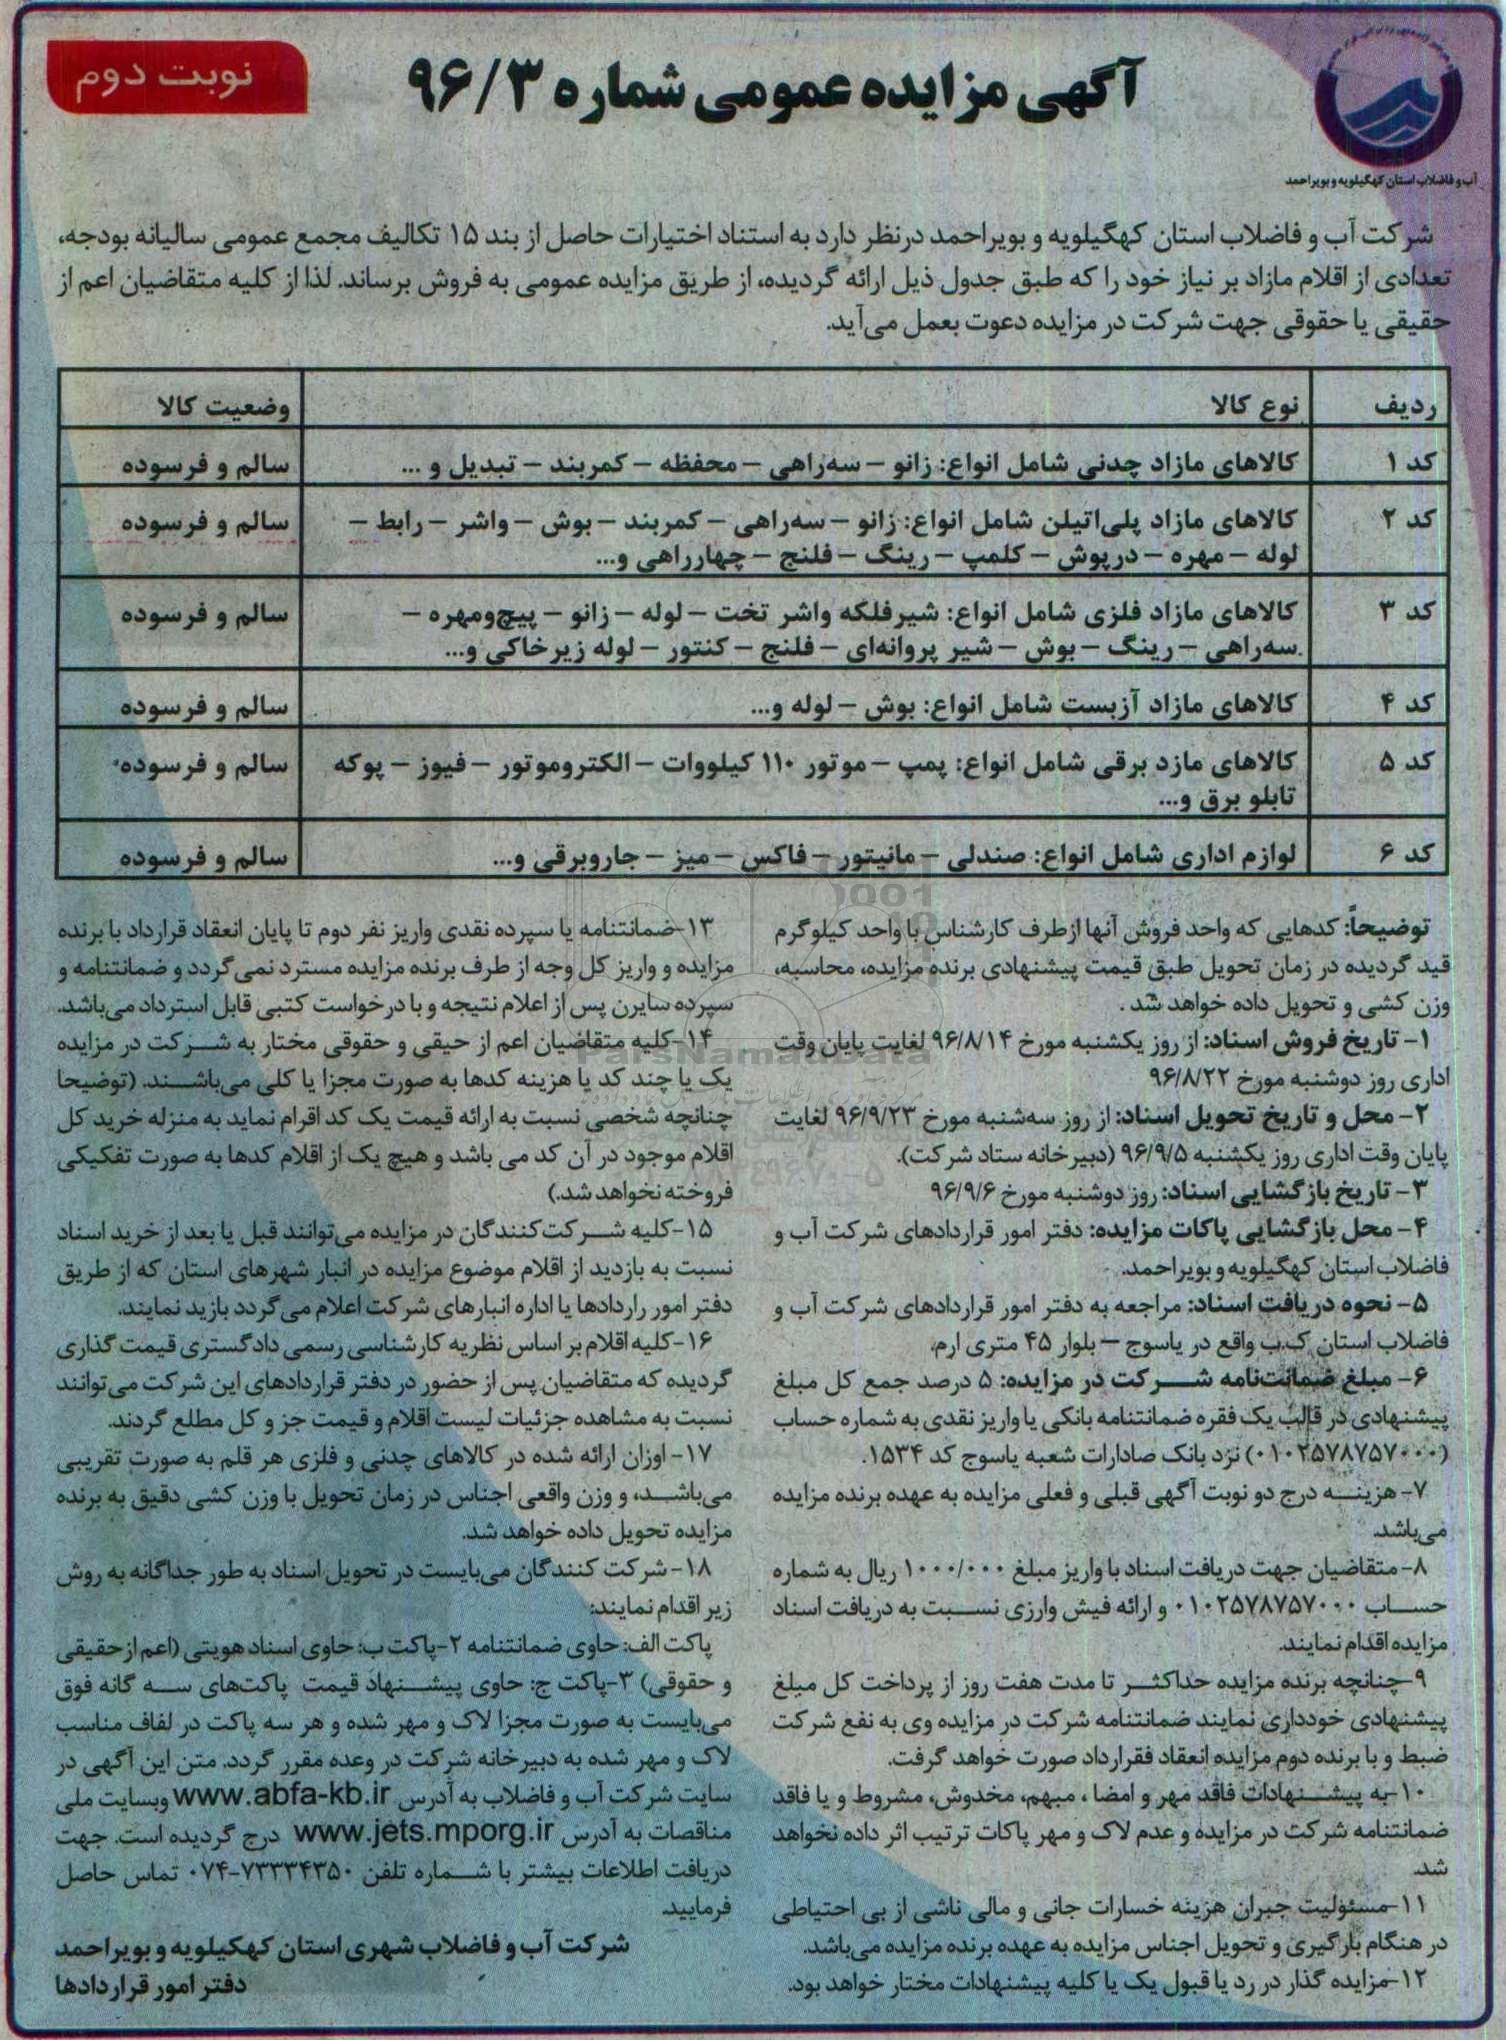 آگهی مزایده عمومی شماره ۹۶/۳
نوبت دوم
آب و فاضلاب استان کهگیلویه و بویراحمد
شرکت آب و فاضلاب استان کهگیلویه و بویراحمد درنظر دارد به استناد اختیارات حاصل از بند ۱۵ تکالیف مجمع عمومی سالیانه بودجه،
تعدادی از اقلام مازاد بر نیاز خود را که طبق جدول ذیل ارائه گردیده، از طریق مزایده عمومی به فروش برساند. لذا از کلیه متقاضیان اعم از
حقیقی یا حقوقی جهت شرکت در مزایده دعوت بعمل می‌آید.
ردیف نوع کالا وضعیت کالا
کد ۱ کالاهای مازاد چدنی شامل انواع: زانو – سه‌راهی – محفظه – کمربند – تبدیل و ... سالم و فرسوده
کد ۲ کالاهای مازاد پلی‌اتیلن شامل انواع: زانو – سه‌راهی – کمربند – بوش – واشر – رابط – سالم و فرسوده
لوله – مهره – درپوش – کلمپ – رینگ – فلنج – چهارراهی و...
کد ۳ کالاهای مازاد فلزی شامل انواع: شیرفلکه واشر تخت – لوله – زانو – پیچ‌ومهره – سالم و فرسوده
سه‌راهی – رینگ – بوش – شیر پروانه‌ای – فلنج – کنتور – لوله زیرخاکی و...
کد ۴ کالاهای مازاد آزبست شامل انواع: بوش – لوله و... سالم و فرسوده
کد ۵ کالاهای مازد برقی شامل انواع: پمپ – موتور ۱۱۰ کیلووات – الکتروموتور – فیوز – پوکه سالم و فرسوده
تابلو برق و...
کد ۶ لوازم اداری شامل انواع: صندلی – مانیتور – فاکس – میز – جاروبرقی و... سالم و فرسوده
توضیحاً: کدهایی که واحد فروش آنها ازطرف کارشناس با واحد کیلوگرم
قید گردیده در زمان تحویل طبق قیمت پیشنهادی برنده مزایده، محاسبه،
وزن کشی و تحویل داده خواهد شد .
۱- تاریخ فروش اسناد: از روز یکشنبه مورخ ۹۶/۸/۱۴ لغایت پایان وقت
اداری روز دوشنبه مورخ ۹۶/۸/۲۲
۲- محل و تاریخ تحویل اسناد: از روز سه‌شنبه مورخ ۹۶/۹/۲۳ لغایت
پایان وقت اداری روز یکشنبه ۹۶/۹/۵ (دبیرخانه ستاد شرکت).
۳- تاریخ بازگشایی اسناد: روز دوشنبه مورخ ۹۶/۹/۶
۴- محل بازگشایی پاکات مزایده: دفتر امور قراردادهای شرکت آب و
فاضلاب استان کهگیلویه و بویراحمد.
۵- نحوه دریافت اسناد: مراجعه به دفتر امور قراردادهای شرکت آب و
فاضلاب استان ک.ب واقع در یاسوج – بلوار ۴۵ متری ارم.
۶- مبلغ ضمانت‌نامه شرکت در مزایده: ۵ درصد جمع کل مبلغ
پیشنهادی در قالب یک فقره ضمانتنامه بانکی یا واریز نقدی به شماره حساب
(۰۱۰۲۵۷۸۷۵۷۰۰۰) نزد بانک صادارات شعبه یاسوج کد ۱۵۳۴.
۷- هزینه درج دو نوبت آگهی قبلی و فعلی مزایده به عهده برنده مزایده
می‌باشد.
۸- متقاضیان جهت دریافت اسناد با واریز مبلغ ۱۰۰۰/۰۰۰ ریال به شماره
حساب ۰۱۰۲۵۷۸۷۵۷۰۰۰ و ارائه فیش وارزی نسبت به دریافت اسناد
مزایده اقدام نمایند.
۹-چنانچه برنده مزایده حداکثر تا مدت هفت روز از پرداخت کل مبلغ
پیشنهادی خودداری نمایند ضمانتنامه شرکت در مزایده وی به نفع شرکت
ضبط و با برنده دوم مزایده انعقاد فقرارداد صورت خواهد گرفت.
۱۰-به پیشنهادات فاقد مهر و امضا ، مبهم، مخدوش، مشروط و یا فاقد
ضمانتنامه شرکت در مزایده و عدم لاک و مهر پاکات ترتیب اثر داده نخواهد
شد.
۱۱-مسئولیت جبران هزینه خسارات جانی و مالی ناشی از بی احتیاطی
در هنگام بارگیری و تحویل اجناس مزایده به عهده برنده مزایده می‌باشد.
۱۲-مزایده گذار در رد یا قبول یک یا کلیه پیشنهادات مختار خواهد بود.
۱۳-ضمانتنامه یا سپرده نقدی واریز نفر دوم تا پایان انعقاد قرارداد با برنده
مزایده و واریز کل وجه از طرف برنده مزایده مسترد نمی‌گردد و ضمانتنامه و
سپرده سایرن پس از اعلام نتیجه و با درخواست کتبی قابل استرداد می‌باشد.
۱۴-کلیه متقاضیان اعم از حیقی و حقوقی مختار به شرکت در مزایده
یک یا چند کد یا هزینه کدها به صورت مجزا یا کلی می‌باشند. (توضیحا
چنانچه شخصی نسبت به ارائه قیمت یک کد اقرام نماید به منزله خرید کل
اقلام موجود در آن کد می باشد و هیچ یک از اقلام کدها به صورت تفکیکی
فروخته نخواهد شد.)
۱۵-کلیه شرکت‌کنندگان در مزایده می‌توانند قبل یا بعد از خرید اسناد
نسبت به بازدید از اقلام موضوع مزایده در انبار شهرهای استان که از طریق
دفتر امور راردادها یا اداره انبارهای شرکت اعلام می‌گردد بازید نمایند.
۱۶-کلیه اقلام بر اساس نظریه کارشناسی رسمی دادگستری قیمت گذاری
گردیده که متقاضیان پس از حضور در دفتر قراردادهای این شرکت می‌توانند
نسبت به مشاهده جزئیات لیست اقلام و قیمت جز و کل مطلع گردند.
۱۷- اوزان ارائه شده در کالاهای چدنی و فلزی هر قلم به صورت تقریبی
می‌باشد، و وزن واقعی اجناس در زمان تحویل با وزن کشی دقیق به برنده
مزایده تحویل داده خواهد شد.
۱۸- شرکت کنندگان می‌بایست در تحویل اسناد به طور جداگانه به روش
زیر اقدام نمایند:
پاکت الف: حاوی ضمانتنامه ۲-پاکت ب: حاوی اسناد هویتی (اعم ازحقیقی
و حقوقی) ۳-پاکت ج: حاوی پیشنهاد قیمت پاکت‌های سه گانه فوق
می‌بایست به صورت مجزا لاک و مهر شده و هر سه پاکت در لفاف مناسب
لاک و مهر شده به دبیرخانه شرکت در وعده مقرر گردد. متن این آگهی در
سایت شرکت آب و فاضلاب به آدرس www.abfa-kb.ir وبسایت ملی
مناقصات به آدرس www.jets.mporg.ir درج گردیده است. جهت
دریافت اطلاعات بیشتر با شماره تلفن ۰۷۴-۷۳۳۳۴۳۵۰ تماس حاصل
فرمایید.
شرکت آب و فاضلاب شهری استان کهکیلویه و بویراحمد
دفتر امور قراردادها
ParsNamadData